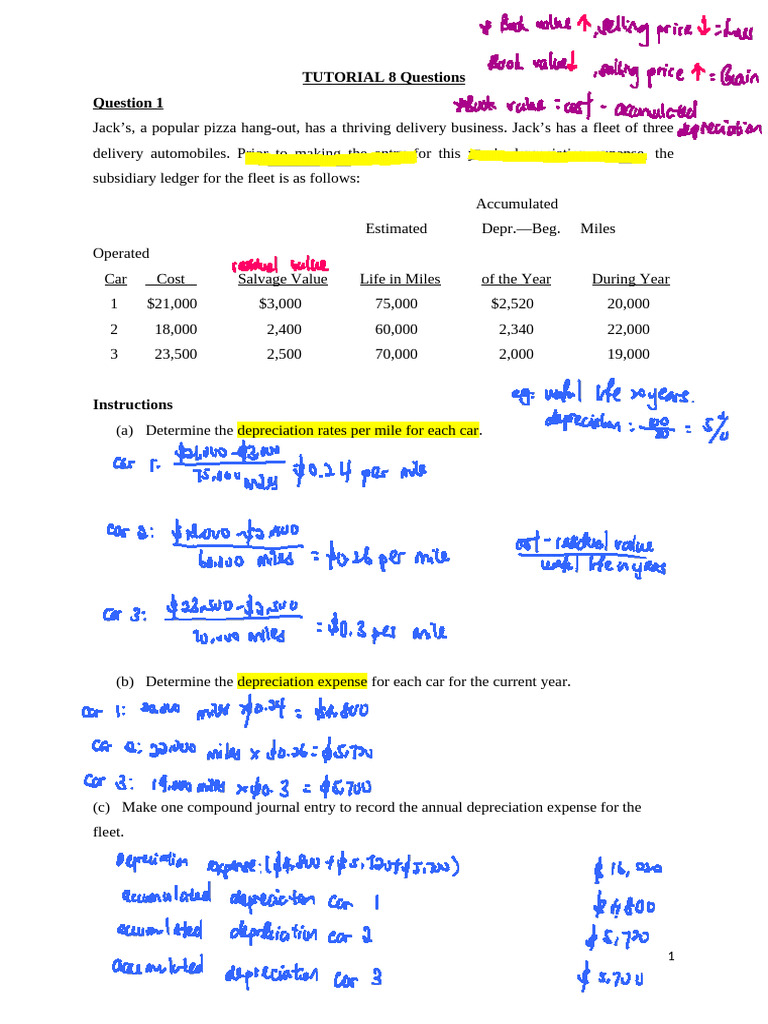 * Book value ↑, selling price ↓ = Loss
Book value ↓, selling price ↑ = Gain
* Book value = cost - accumulated depreciation
TUTORIAL 8 Questions
Question 1
Jack’s, a popular pizza hang-out, has a thriving delivery business. Jack’s has a fleet of three
delivery automobiles. Prior to making the entry for this year's depreciation expense, the
subsidiary ledger for the fleet is as follows:
Accumulated
Estimated Depr.—Beg. Miles
Operated
residual value
Car Cost Salvage Value Life in Miles of the Year During Year
1 $21,000 $3,000 75,000 $2,520 20,000
2 18,000 2,400 60,000 2,340 22,000
3 23,500 2,500 70,000 2,000 19,000
eg: useful life 20 years.
Instructions
depreciation: 100/20 = 5%
(a) Determine the depreciation rates per mile for each car.
car 1: $21,000 - $3,000
75,000 miles $0.24 per mile
car 2: $18,000 - $2,400
60,000 miles = $0.26 per mile
cost - residual value
useful life in years
car 3: $23,500 - $2,500
70,000 miles = $0.3 per mile
(b) Determine the depreciation expense for each car for the current year.
car 1: 20,000 miles x $0.24 = $4,800
car 2: 22,000 miles x $0.26 = $5,720
car 3: 19,000 miles x $0.3 = $5,700
(c) Make one compound journal entry to record the annual depreciation expense for the
fleet.
Depreciation expense: ($4,800 + $5,720 + $5,700) $16,220
accumulated depreciation car 1 $4,800
accumulated depreciation car 2 $5,720
accumulated depreciation car 3 $5,700
1